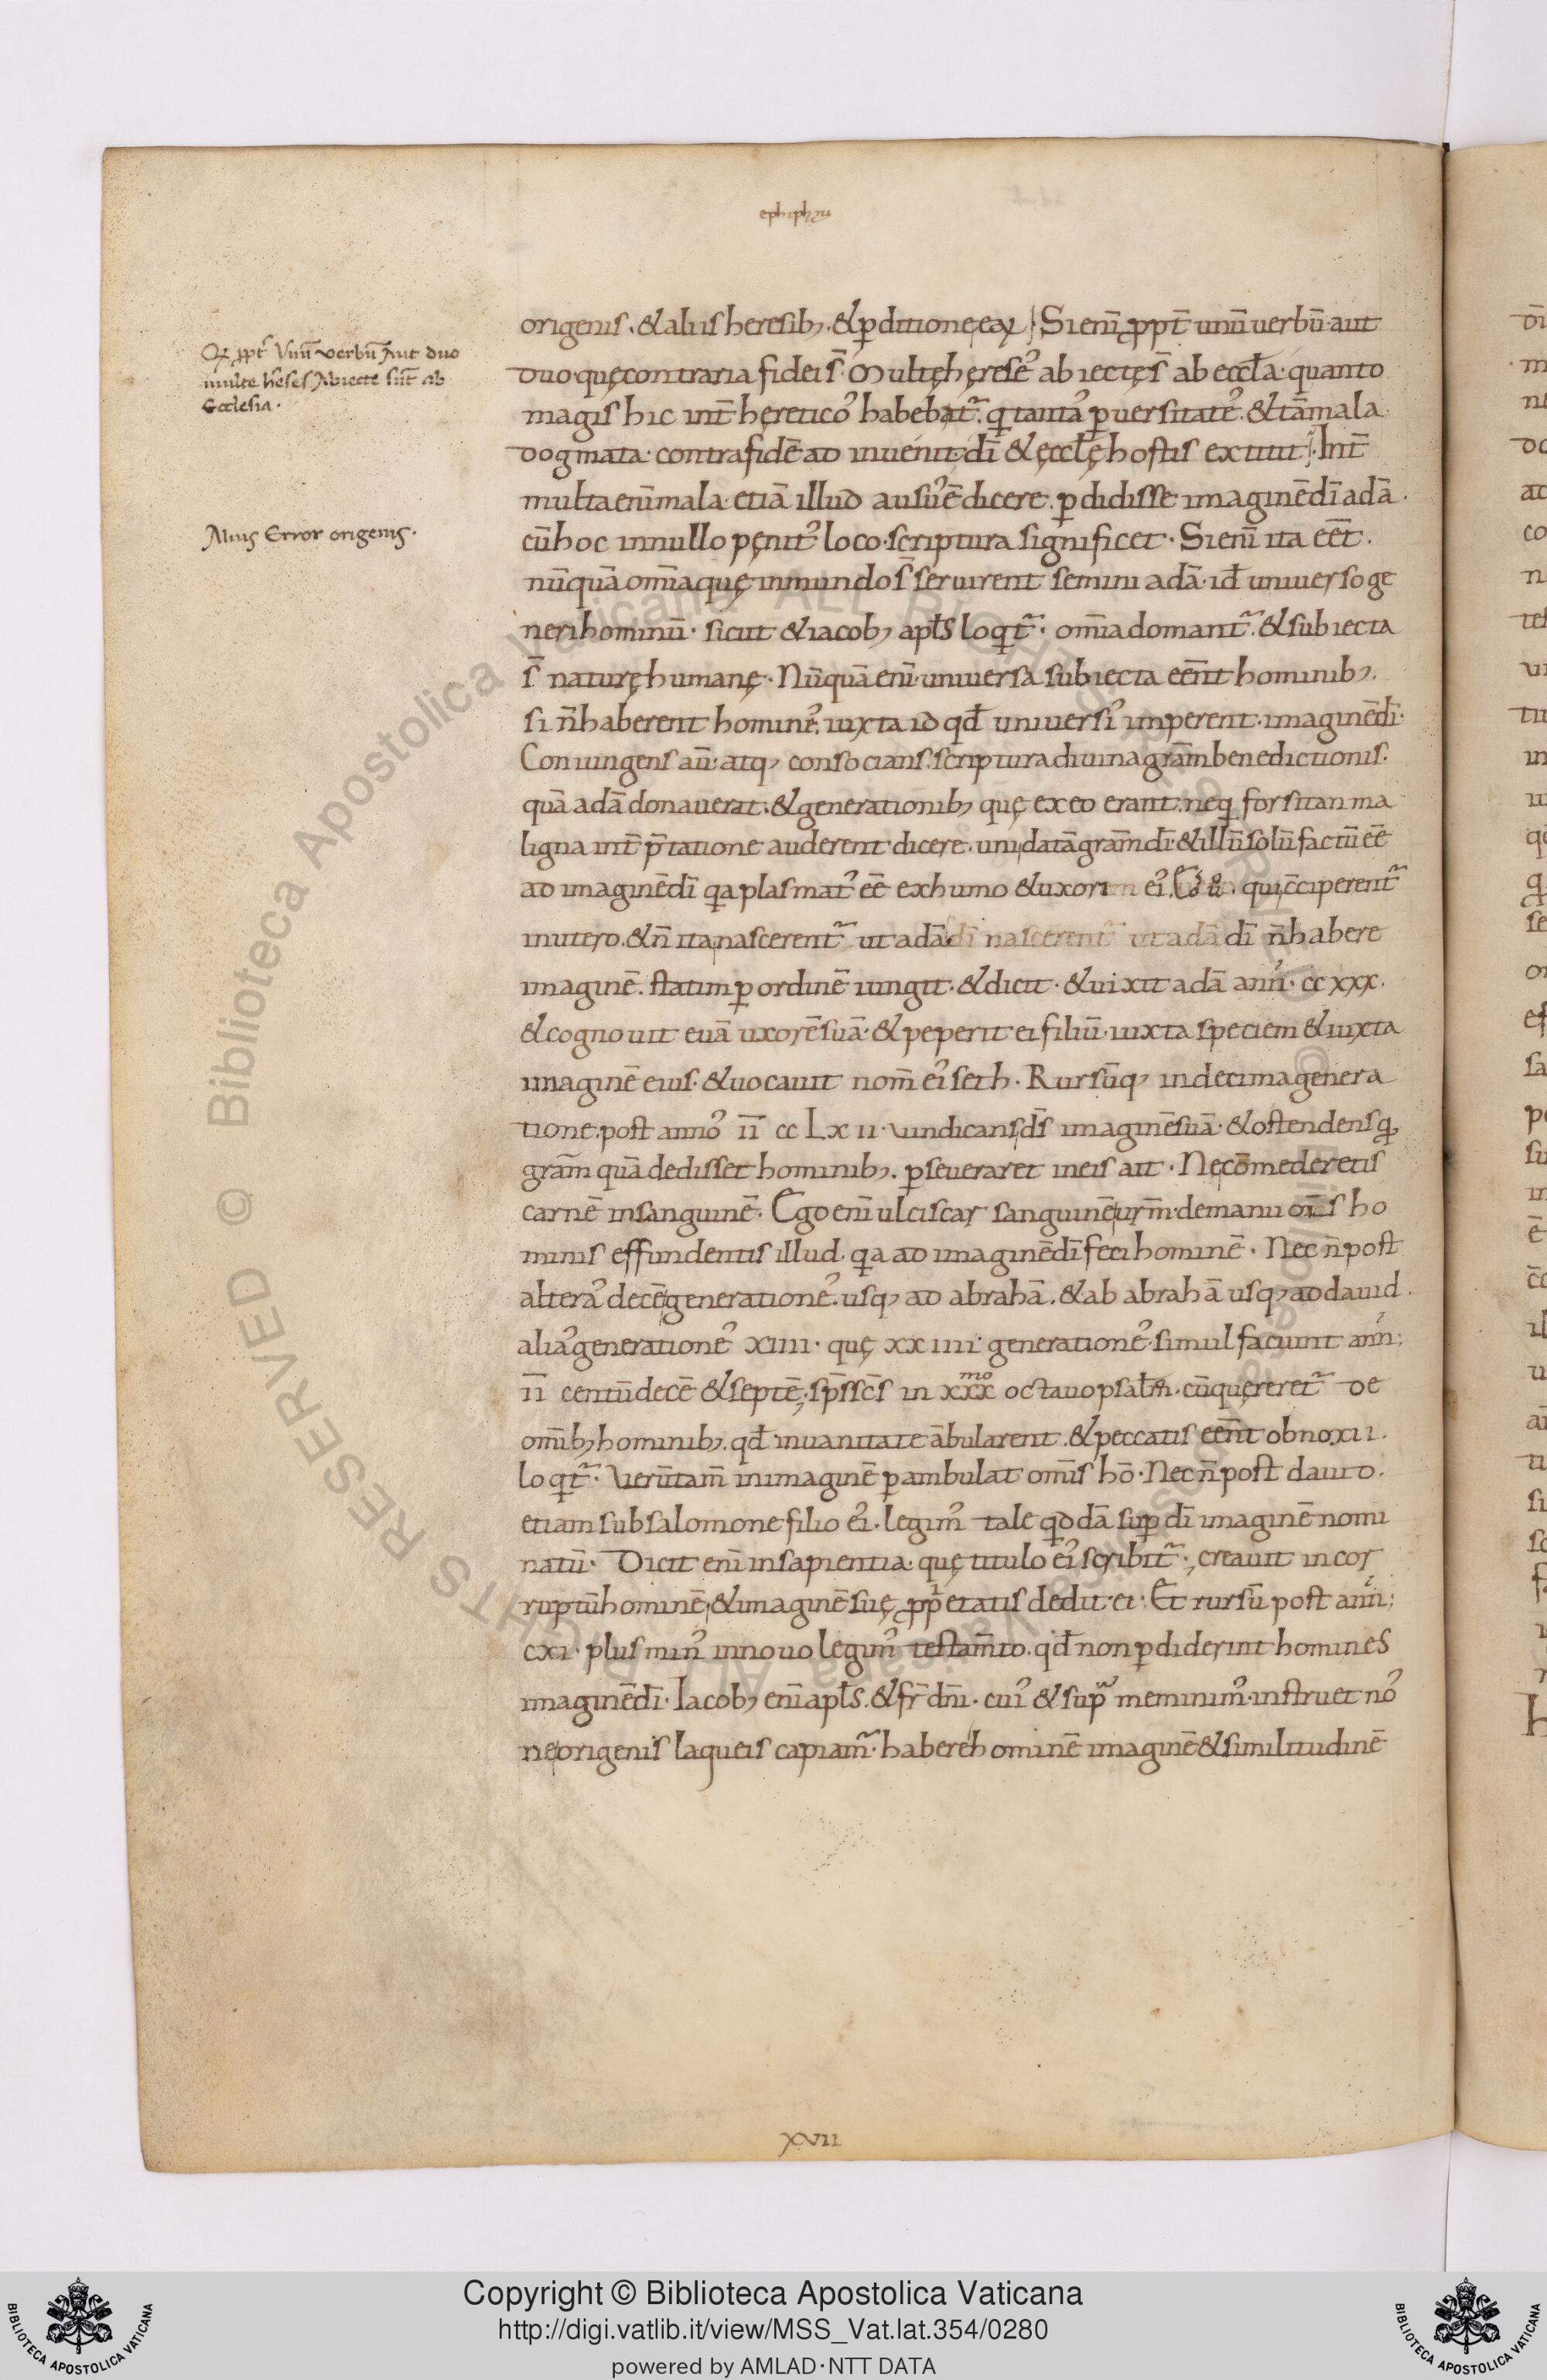 ephiphau
origenis. & aliis heresib; & pditione eaꝝ. Si eni ꝓpt̄ unū uerbū aut
duo quę contraria fidei s̄. Multę hęreses abiectę s̄ ab eccl̄a. quanto
magis hic int̄ hęretico᾽ habebat᷑. q̄ tanta᾽ puersitate᾽. & tā mala
dogmata. contra fidē adinuenit. dī & ęccl̄ę hostis extitit. Int̄
multa enī mala. etiā illud ausu᾽ ē dicere. pdidisse imaginē dī adā.
cū hoc in nullo penit᾽ loco. scriptura significet. Si enī ita eēt.
nūquā om̄ia quę in mundo s̄ seruirent semini adā. id̄ uniuerso ge
neri hominū. sicut & iacob; apl̄s loq̄t᷑. om̄ia domant᷑. & subiecta
s̄ naturę humanę. Nūquā enī uniuersa subiecta eēnt hominib;.
si n̄ haberent homine᾽. iuxta id qd̄ uniuersi᾽ imperent. imaginē dī.
Coniungens aū. atq; consocians. scriptura diuina grām benedictionis.
quā adā donauerat. & generationib; quę ex eo erant. neq̄ forsitan ma
ligna int̄p̄tatione auderent dicere. uni datā grām dī. & illū solū factū eē
ad imaginē dī. q̄a plasmat᾽ eē ex humo & uxor ei᾽. qui c̄ciperent᷑
in utero. & n̄ ita nascerent᷑ ut adā. dī nascerent᷑ ut adā dī n̄ habere
imaginē. statim p ordinē iungit. & dicit. & uixit adā ann᾽. cc xxx.
& cognouit euā uxorē suā. & peperit ei filiū. iuxta speciem & iuxta
imaginē eius. & uocauit nom̄ ei᾽ seth. Rursūq; in decima genera
tione. post anno᾽ īī cc Lx ii. uindicans dī̄s imaginē suā. & ostendens q̄
grām quā dedisset hominib;. pseueraret in eis ait. Ne comederetis
carnē in sanguinē. Ego enī ulciscar sanguinē ur̄m. de manu oīs ho
minis effundentis illud. q̄a ad imaginē dī feci hominē. Nec n̄ post
altera᾽ decē generatione᾽. usq; ad abrahā. & ab abrahā usq; ad dauid.
alia᾽ generatione᾽ xiiii. quę xxiiii generatione᾽ simul faciunt ann᾽;
īī centū decē & septē. sp̄s sc̄s in xxx^mo octauo psal̄m. cū quęreret᷑ de
om̄ib; hominib;. qd̄ in uanitate ābularent. & peccatis eēnt obnoxii.
loq̄t᷑. Uerūtam̄ in imaginē pambulat om̄is hō. Nec n̄ post dauid.
etiam sub salomone filio ei᾽. legim᾽ tale q̄ddā sup dī imaginē nomi
natū. Dicit enī in sapientia. quę titulo ei᾽ scribit᷑. creauit incor
ruptū hominē. & imaginē suę ꝓp̄etatis dedit ei. Et rursū post ann᾽;
cxi. plus min᾽ in nouo legim᾽ testam̄to. qd̄ non pdiderint homines
imaginē dī. Iacob; enī apl̄s. & fr̄ dn̄i. cui᾽ & sup^a meminim᾽. instruet no᾽
ne origenis laqueis capiam᷑. habere hominē imaginē & similitudinē
Qꝫ ꝓpt᷑ Vnū verbū Aut duo
multe heses Abiecte sūt ab
Ecclesia.
Alius Error origenis.
xvii
© Biblioteca Apostolica Vaticana ALL RIGHTS RESERVED
Copyright © Biblioteca Apostolica Vaticana
http://digi.vatlib.it/view/MSS_Vat.lat.354/0280
powered by AMLAD·NTT DATA
BIBLIOTECA APOSTOLICA VATICANA
BIBLIOTECA APOSTOLICA VATICANA